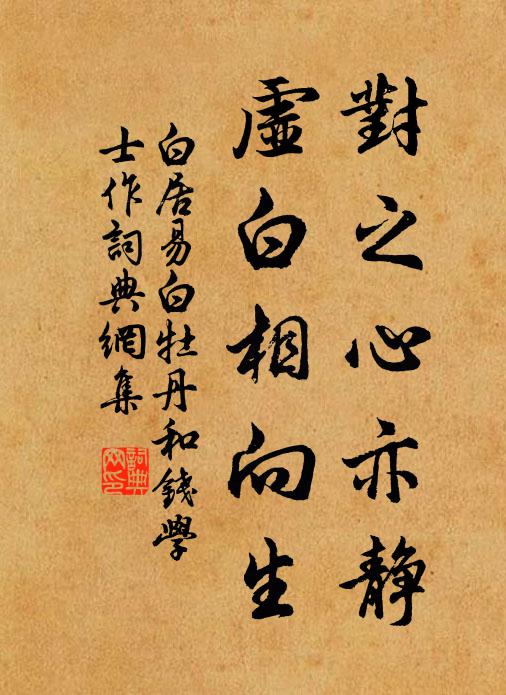 對之心亦静
虛白相向生
白居易白牡丹和錢學
士作詞典網集
詞典
網印